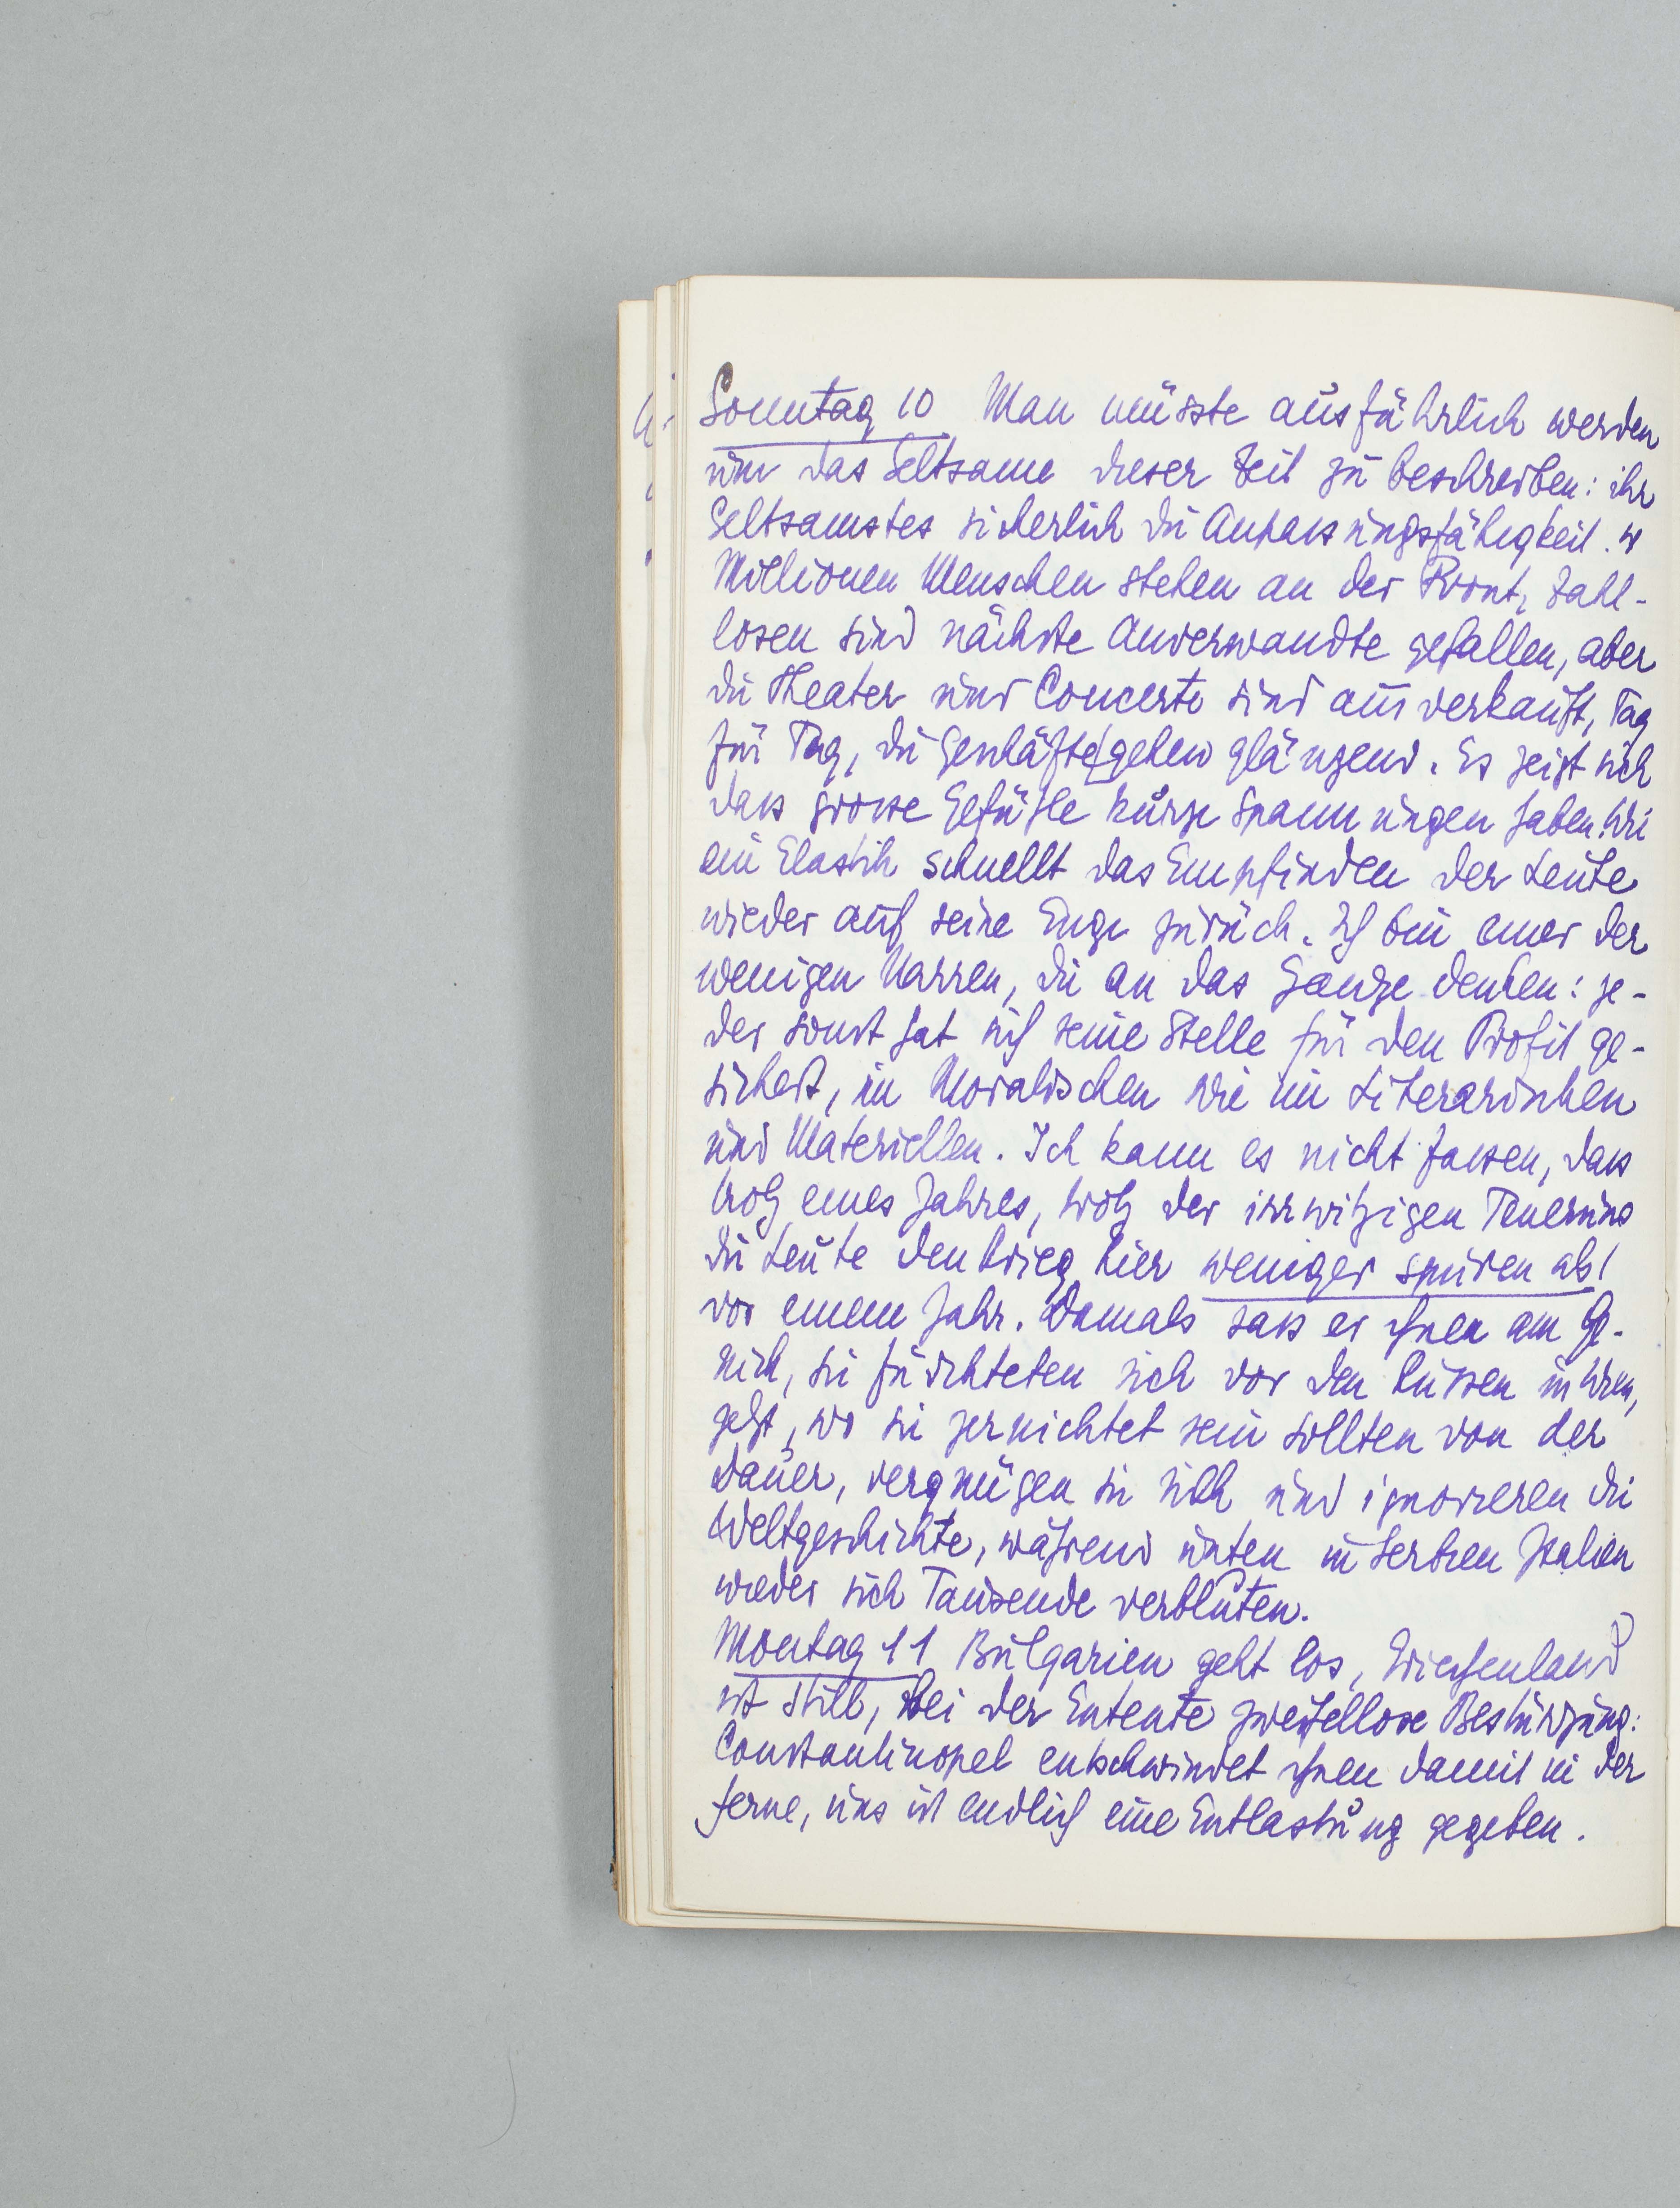 Sonntag 10 Man müsste ausführlich werden
um das Seltsame dieser Zeit zu beschreiben: ihr
Seltsamstes sicherlich die Anpassungsfähigkeit.
Millionen Menschen stehen an der Front, Zahl-
losen sind nächste Anverwandte gefallen, aber
die Theater und Concerte sind ausverkauft, Tag
für Tag, die Geschäfte gehen glänzend. Es zeigt sich
dass grosse Gefühle kurze Spannungen haben. Wie
ein Elastik schnellt das Empfinden der Leute
wieder auf seine Enge zurück. Ich bin einer der
wenigen Narren, die an das Ganze denken: je-
der sonst hat sich seine Stelle für den Profit ge-
sichert, im Moralischen wie im Literarischen
und Materiellen. Ich kann es nicht fassen, dass
trotz eines Jahres, trotz der irrwitzigen Teuerung
die Leute den Krieg hier weniger spüren als
vor einem Jahr. Damals sass er ihnen am Ge-
nick, sie fürchteten sich vor den Russen in Wien,
jetzt, wo sie zernichtet sein sollten von der
Dauer, vergnügen sie sich und ignorieren die
Weltgeschichte, während unten in Serbien Italien
wieder sich Tausende verbluten.
Montag 11 Bulgarien geht los, Griechenland
ist still, bei der Entente zweifellose Bestürzung:
Constantinopel entschwindet ihnen damit in der
Ferne, uns ist endlich eine Entlastung gegeben.